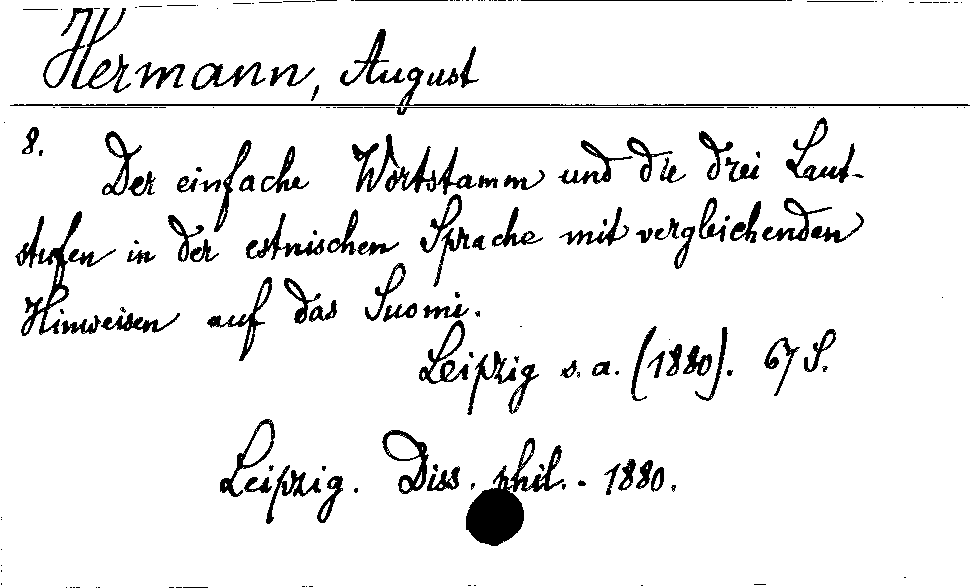 Hermann, August
8.
Der einfache Wortstamm und die drei Laut-
stufen in der estnischen Sprache mit vergleichenden
Hinweisen auf das Suomi.
Leipzig s. a. (1880). 67 S.
Leipzig. Diss. phil. . 1880.